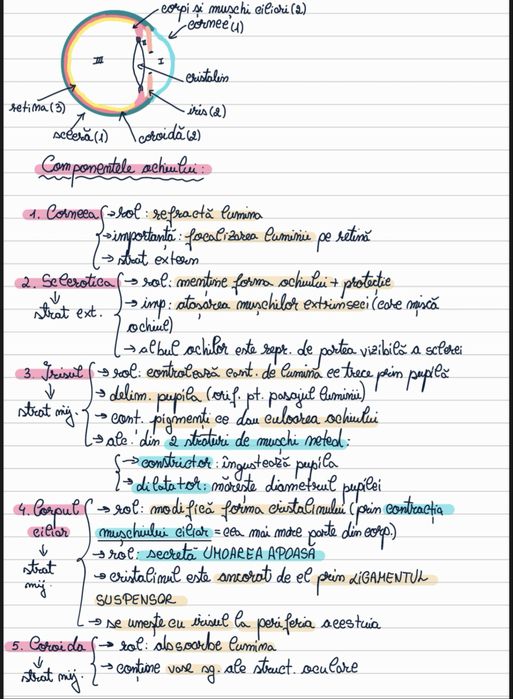 corpi și mușchi ciliari (2)
cornee (1)
III
II
I
cristalin
retina (3)
iris (2)
scleră (1)
coroidă (2)
Componentele ochiului:
1. Corneea → rol: refractă lumina
→ importantă: focalizarea luminii pe retină
→ strat extern
2. Sclerotica → rol: mentine forma ochiului + protecție
↓
strat ext.
→ imp: atașarea mușchilor extrinseci (care mișcă
ochiul)
→ albul ochilor este repr. de partea vizibilă a sclerei
3. Irisul → rol: controlează cant. de lumina ce trece prin pupilă
↓
strat mij.
→ delim. pupila (orif. pt. pasajul luminii)
→ cont. pigmenți ce dau culoarea ochiului
→ alc. din 2 straturi de muschi neted:
→ constrictor: îngustează pupila
→ dilatator: mărește diametrul pupilei
4. Corpul
ciliar
↓
strat
mij.
→ rol: modifică forma cristalinului (prin contracția
mușchiului ciliar = cea mai mare parte din corp.)
→ rol: secretă UMOAREA APOASA
→ cristalinul este ancorat de el prin LIGAMENTUL
SUSPENSOR
→ se unește cu irisul la periferia acestuia
5. Coroida → rol: absoarbe lumina
↓
strat mij.
→ conține vase sg. ale struct. oculare